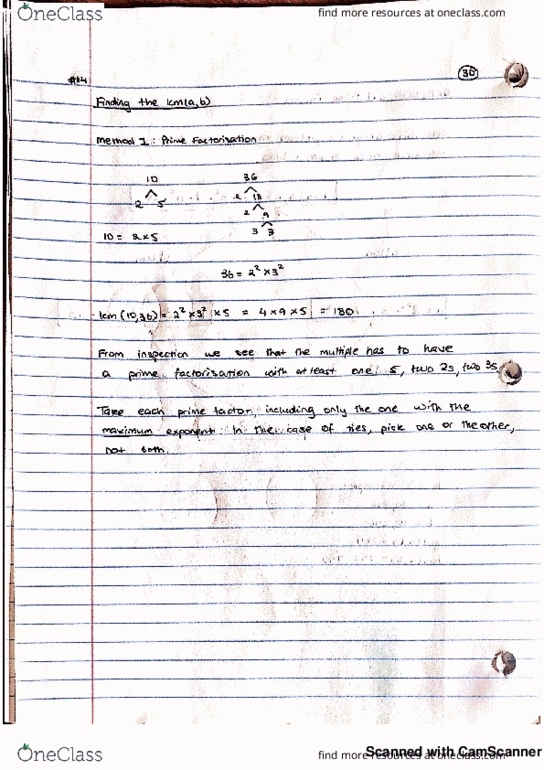 OneClass
find more resources at oneclass.com
#14
30
Finding the lcm(a,b)
Method 1: Prime Factorisation
10 36
2 5 2 18
2 9
3 3
10 = 2×5
36 = 2² × 3²
lcm (10,36) = 2² × 3² × 5 = 4 × 9 × 5 = 180
From inspection we see that the multiple has to have
a prime factorisation with at least one 5, two 2s, two 3s
Take each prime factor, including only the one with the
maximum exponent. In the case of ties, pick one or the other,
not both.
OneClass
find more resources at oneclass.com
Scanned with CamScanner